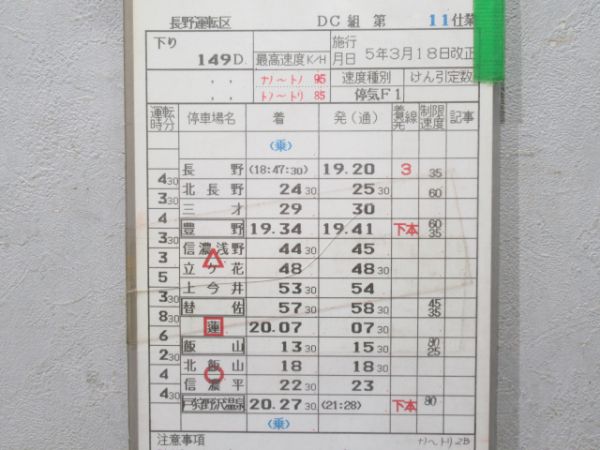 長野運転区 DC組 第 11仕業
下り 149D. 最高速度K/H 施行月日 5年3月18日改正
. . ナノ～トノ 95 速度種別 けん引定数
. . トノ～トリ 85 停気F1
運転時分 停車場名 着 発(通) 着発線 制限速度 記事
(乗)
長野 (18:47:30) 19.20 3 35
430
北長野 24 30 25 30 60
330
三才 29 30
4
豊野 19.34 19.41 下本 60 35
330
信濃浅野 44 30 45
3
立ケ花 48 48 30
5
上今井 53 30 54
330
替佐 57 30 58 30 45 35
830
蓮 20.07 07 30
6
飯山 13 30 15 30 80 25
230
北飯山 18 18 30
4
信濃平 22 30 23
430
戸狩野沢温泉 20.27 30 (21:28) 下本 80
(乗)
注意事項 ナノ～トリ2B